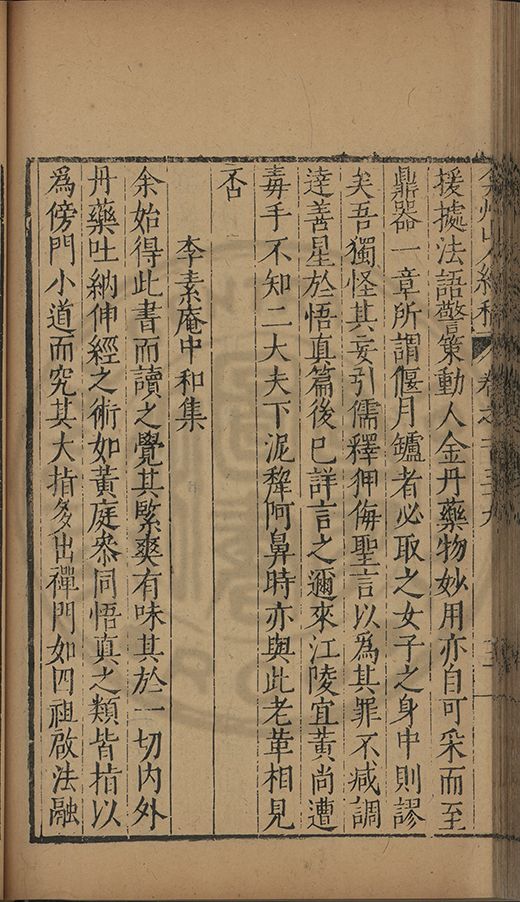 弇州山人續稿 卷之一百五十九
援據法語警策動人金丹藥物妙用亦自可采而至
鼎器一章所謂偃月鑪者必取之女子之身中則謬
矣吾獨怪其妄引儒釋狎侮聖言以為其罪不减調
達善星於悟真篇後已詳言之邇來江陵宜黃尚遭
毒手不知二大夫下泥犂阿鼻時亦與此老革相見
否
李素庵中和集
余始得此書而讀之覺其緊爽有味其於一切內外
丹藥吐納伸經之術如黃庭叅同悟真之類皆指以
為傍門小道而究其大指多出禪門如四祖啟法融